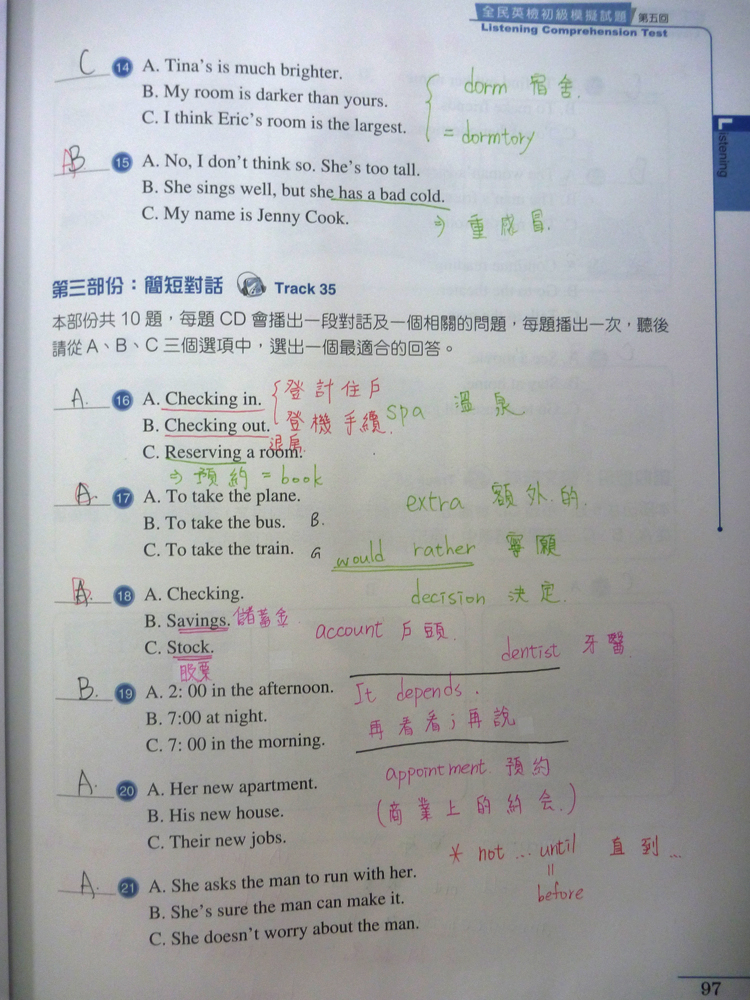 全民英檢初級模擬試題 第五回
Listening Comprehension Test
Listening
C 14 A. Tina's is much brighter.
B. My room is darker than yours.
C. I think Eric's room is the largest.
dorm 宿舍.
= dormtory
B 15 A. No, I don't think so. She's too tall.
B. She sings well, but she has a bad cold.
C. My name is Jenny Cook.
⇒ 重感冒.
第三部份：簡短對話 Track 35
本部份共 10 題，每題 CD 會播出一段對話及一個相關的問題，每題播出一次，聽後
請從 A、B、C 三個選項中，選出一個最適合的回答。
A. 16 A. Checking in.
B. Checking out.
C. Reserving a room.
登計住戶
登機手續
退房
spa 溫泉
⇒ 預約 = book
A. 17 A. To take the plane.
B. To take the bus. B.
C. To take the train. G
extra 額外的.
would rather 寧願
18 A. Checking.
B. Savings. 儲蓄金
C. Stock.
股票
decision 決定.
account 戶頭.
dentist 牙醫
B. 19 A. 2: 00 in the afternoon.
B. 7:00 at night.
C. 7: 00 in the morning.
It depends.
再看看；再說
A. 20 A. Her new apartment.
B. His new house.
C. Their new jobs.
appointment 預約
(商業上的約会.)
A. 21 A. She asks the man to run with her.
B. She's sure the man can make it.
C. She doesn't worry about the man.
* not ... until 直到...
=
before
97